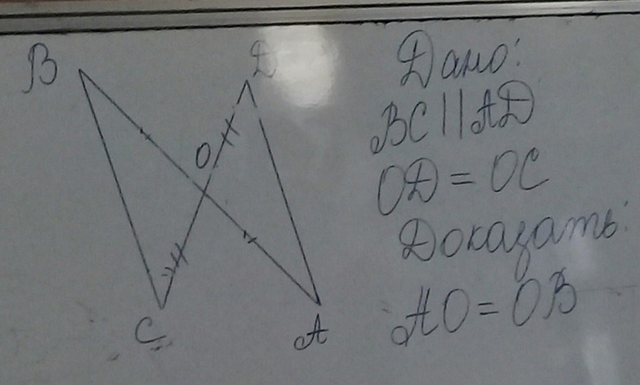 B
D
O
C
A
Дано:
BC||AD
OD = OC
Доказать:
AO = OB